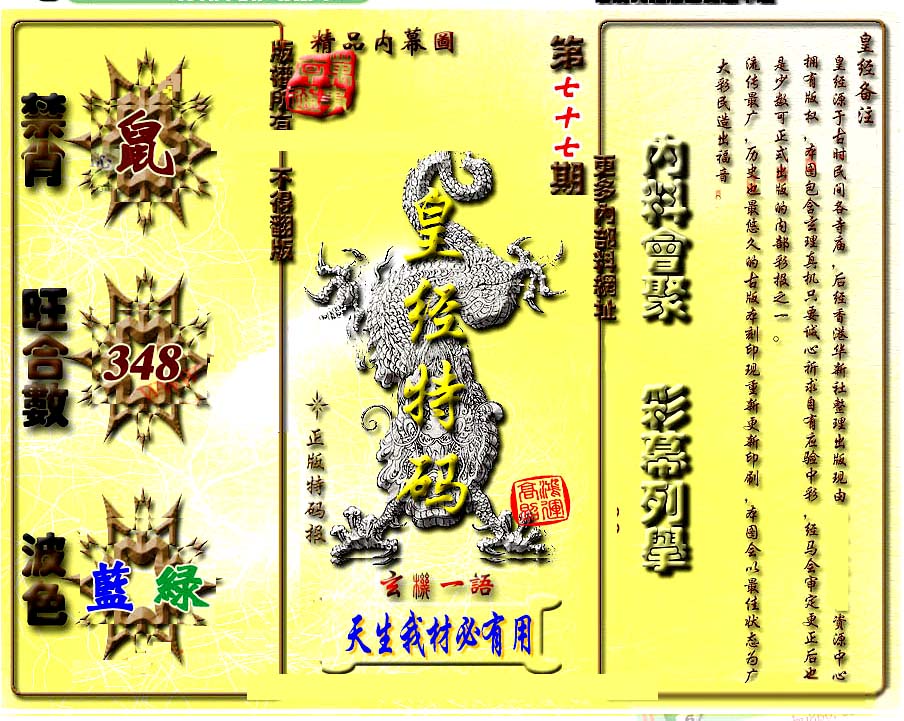 精品内幕圖
版權所有
不得翻版
禁肖
鼠
旺合數
348
波色
藍 綠
第七十七期
皇经特码
※正版特码报
鴻運
高照
玄機一語
天生我材必有用
更多內部料網址
內料會聚
彩幕列學
皇经备注
皇经源于古时民间各寺庙，后经香港华新社整理出版现由 资源中心
拥有版权，本图包含玄理真机只要诚心祈求自有应验中彩，经马会审定更正后也
是少数可正式出版的内部彩报之一。
流传最广，历史也最悠久的古版本刻印现重新更新印刷，本图会以最佳状态为广
大彩民造出福音